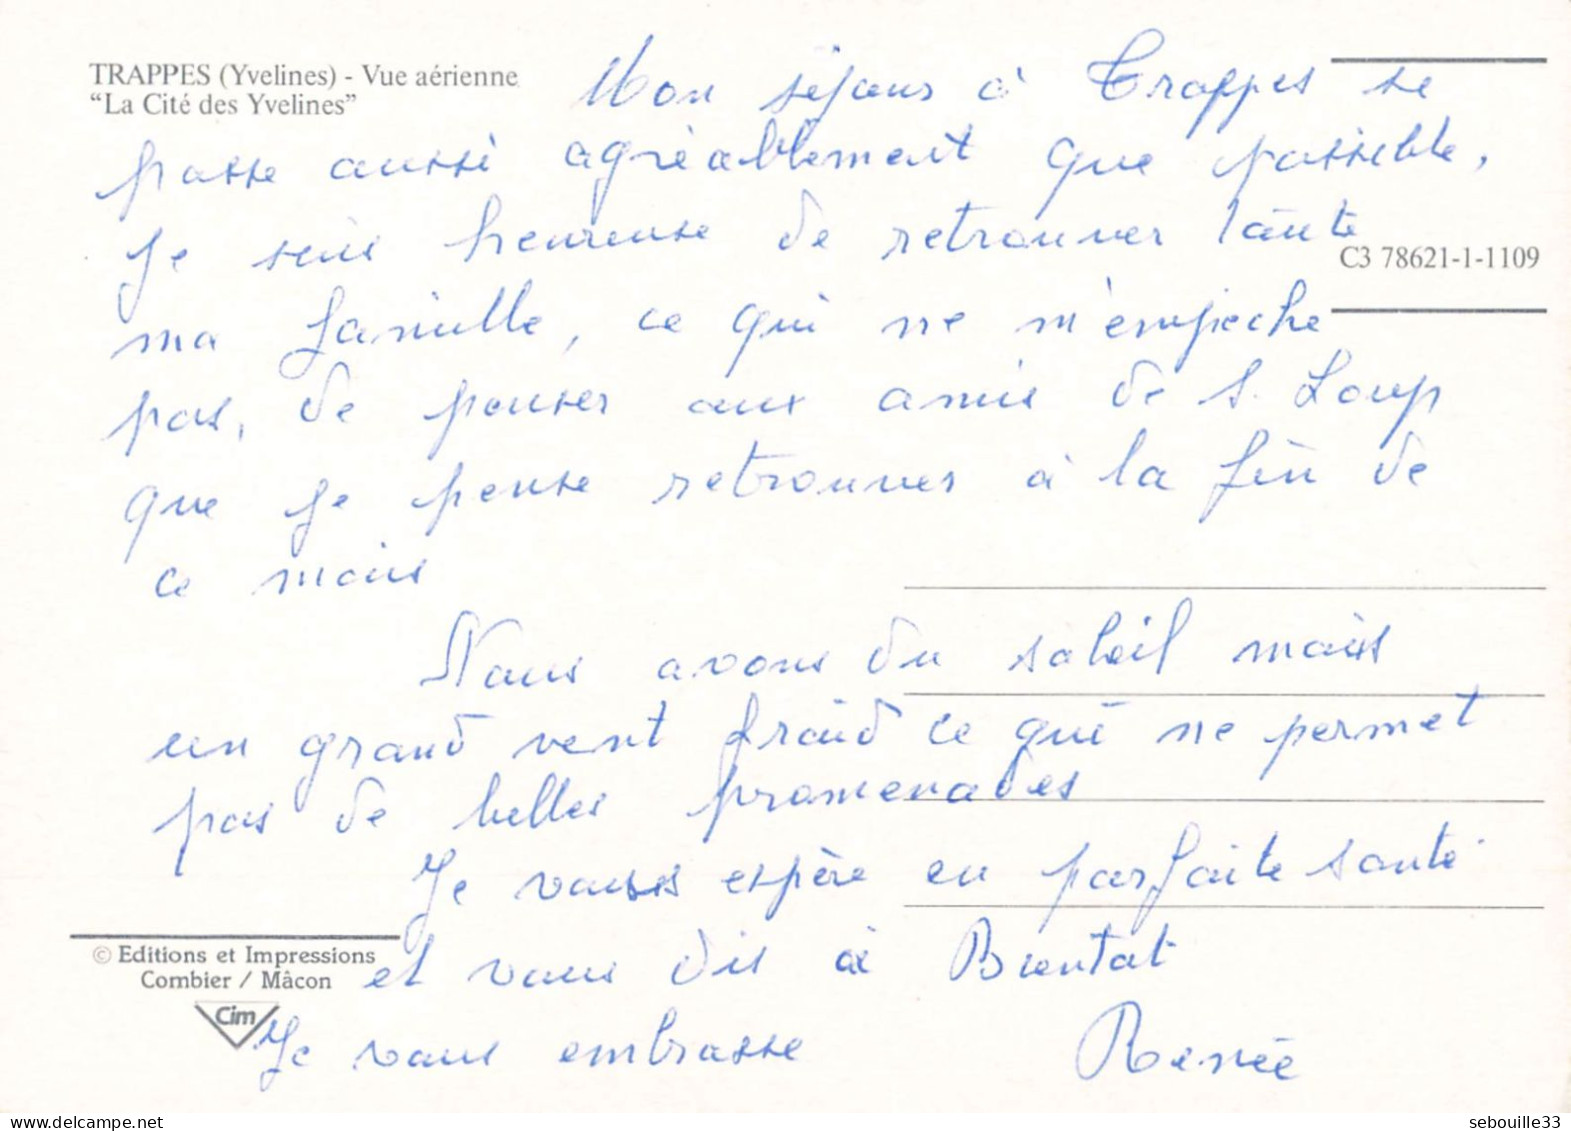 TRAPPES (Yvelines) - Vue aérienne
“La Cité des Yvelines”
Mon séjour à Trappes se
passe aussi agréablement que possible,
je suis heureuse de retrouver toute
C3 78621-1-1109
ma famille, ce qui ne m'empeche
pas, de penser aux amis de S. Loup
que je pense retrouver à la fin de
ce mois
Nous avons du soleil mais
un grand vent froid ce qui ne permet
pas de belles promenades
Je vous espère en parfaite santé
et vous dis à Bientot
Je vous embrasse Renée
© Editions et Impressions
Combier / Mâcon
Cim
sebouille33